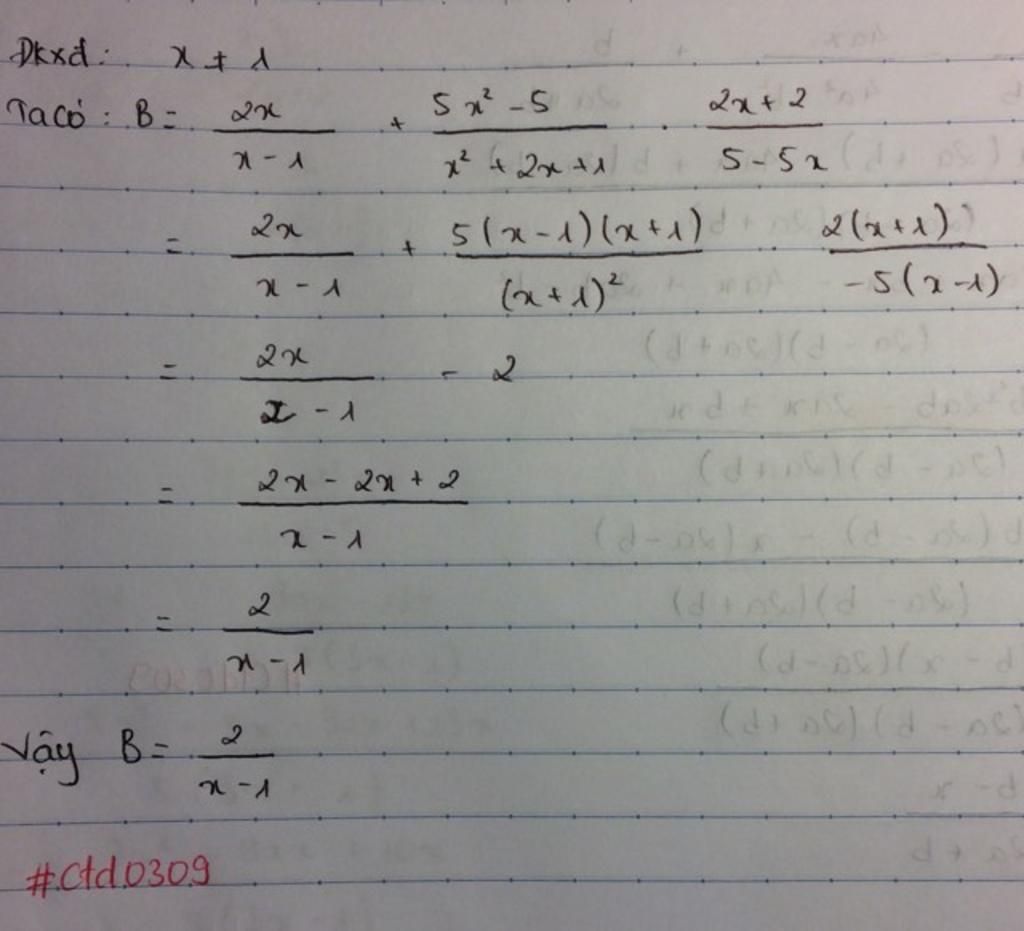 Đkxđ: x ≠ 1
Ta có: B = \frac{2x}{x-1} + \frac{5x² - 5}{x² + 2x + 1} . \frac{2x + 2}{5 - 5x}
= \frac{2x}{x-1} + \frac{5(x-1)(x+1)}{(x+1)²} . \frac{2(x+1)}{-5(x-1)}
= \frac{2x}{x-1} - 2
= \frac{2x - 2x + 2}{x-1}
= \frac{2}{x-1}
Vậy B = \frac{2}{x-1}
#Ctd0309